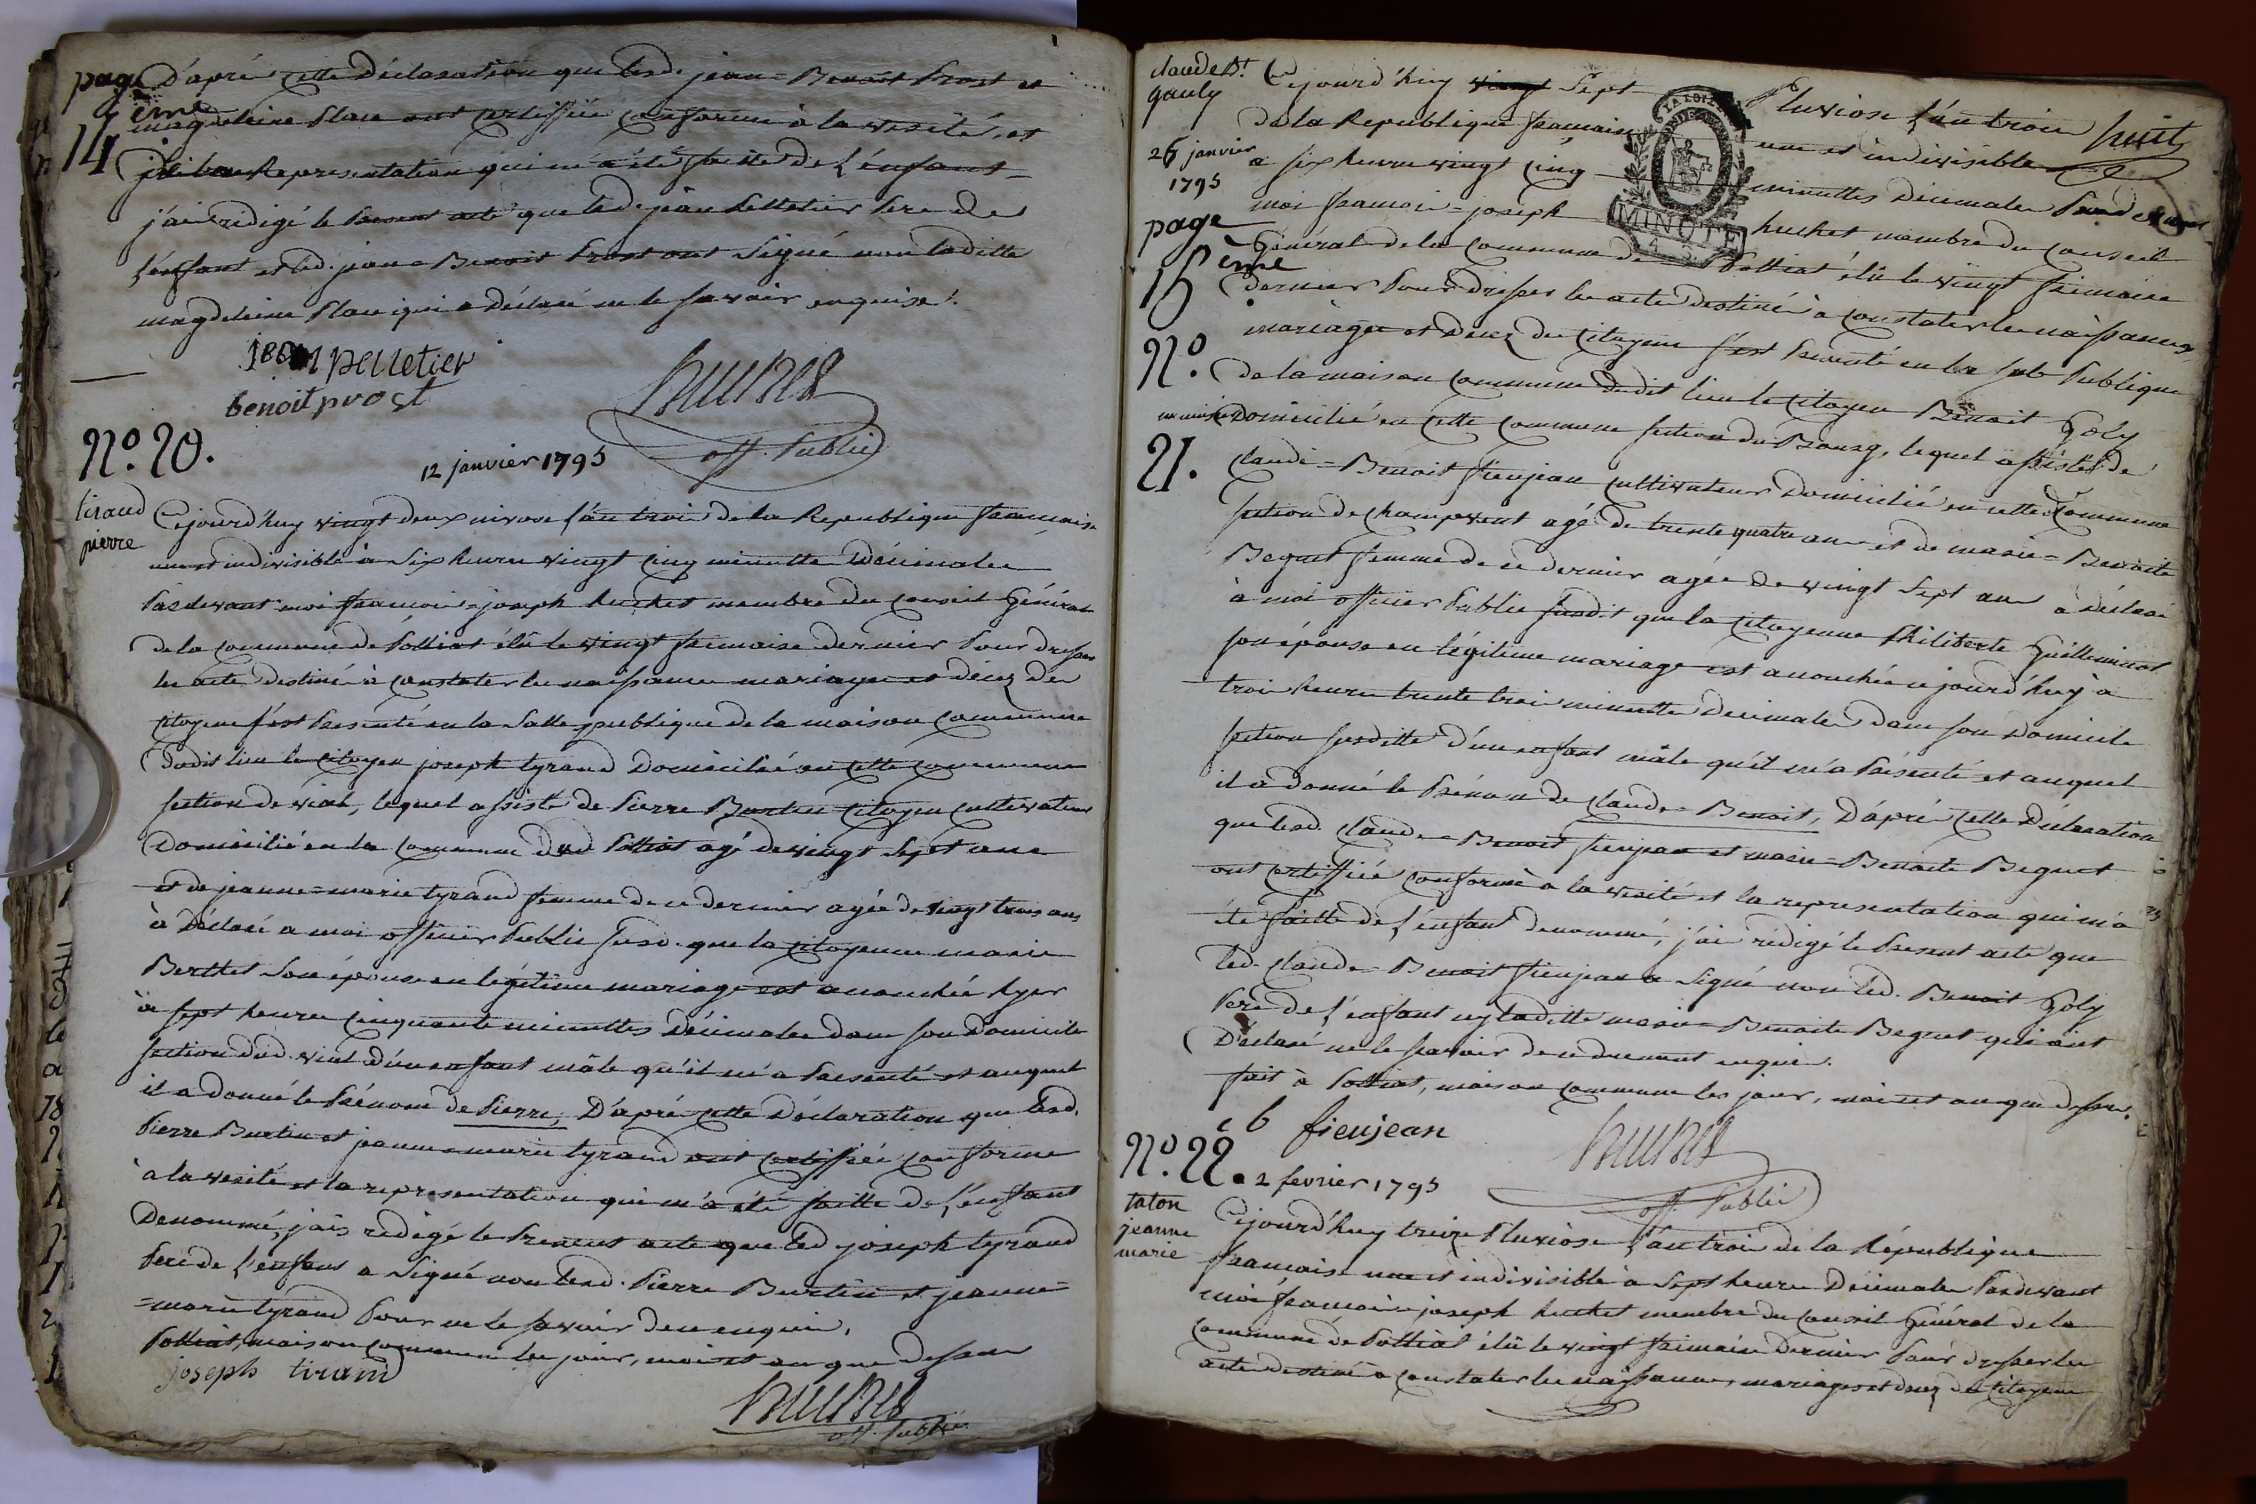 page
14 ème
D'aprés cette déclaration que lesd. jean=Benoit Prost et
magdeleine Place ont certiffiée conforme à la verité, et
la Representation qui m'a été faitte de L'enfant=
j'ai redigé le present acte que led. jean Pelletier Pere de
L'enfant et led. jean=Benoit Prost ont Signé non laditte
magdeleine Place qui a déclaré ne le savoir enquise.
jean pelletier
benoit prost
huchet
off. Public
N.º 20.
12 janvier 1795
tiraud
pierre
Cejourd'huy vingt deux nivose L'an trois de la Republique francaise
une et indivisible à Six heures vingt Cinq minutte Décimales
Pardevant moi francois=joseph huchet membre du conseil Général
de la commune de Polliat élû le vingt frimaire dernier Pour dresser
les acte destiné à constater les naissance mariages et décez des
Citoyens s'est Presenté en la Salle publique de la maison commune
Dudit lieu le citoyen joseph tyrand Domicilié en cette commune
section de vial, lequel assisté de Pierre Burtin citoyen cultivateur
Domicilié en la commune dud Polliat âgé de vingt Sept ans
et de jeanne=marie tyrand femme de ce dernier agée de vingt trois ans
à Déclaré a moi officier Public susd. que la citoyenne marie
Berthet Son épouse en légitime mariage est accouchée hyer
à sept heures cinquante minuttes Décimales dans son domicile
section dud. vial d'un enfant mâle qu'il m'a Presenté et auquel
il a donné le Prénom de Pierre, D'aprés cette Déclaration que lesd.
Pierre Burtin et jeanne=marie tyrand ont certiffiée conforme
à la verité et la representation qui m'a été faitte de L'enfant
Denommé, j'ais redigé le Present acte que led joseph tyrand
Pere de L'enfant a Signé non lesd. Pierre Burtin et jeanne=
=marie tyrand Pour ne le savoir de ce enquis.
Polliat, maison commune les jour, mois et an que dessus
joseph tirand
huchet
off. Public
claude Bt.
gauly
26 janvier
1795
page
15 ème
N.º
21.
huit
Cejourd'huy vingt Sept Pluviose L'an trois
de la Republique francaise une et indivisible
a six heures vingt cinq minuttes Décimales Pardevant
moi francois=joseph huchet membre du Conseil
Général de la commune de Polliat élû le vingt frimaire
dernier Pour dresser les acte destiné à constater les naissances
mariages et décez des Citoyens s'est Presenté en la sale Publique
de la maison commune dudit lieu le citoyen Benoit Goly
Domicilié en cette commune section du Bourg, lequel assisté de
Claude=Benoit fieujean cultivateur Domicilié en cette Commune
section de champvent agé de trente quatre ans et de marie=Benoite
Beguet femme de ce dernier agée de vingt Sept ans à déclaré
à moi officier Public susdit que la citoyenne Philiberte Guilleminot
son épouse en légitime mariage est accouchée cejourd'huy à
trois heures trente trois minuttes décimales dans son domicile
section susditte d'un enfant mâle qu'il m'a Présenté et auquel
il a donné le Prénom de Claude=Benoit, D'aprés cette Déclaration
que lesd. Claude=Benoit fieujean et marie=Benoite Beguet
ont certiffiée conforme à la verité et la representation qui m'a
été faitte de L'enfant denommé, j'ai rédigé le Present acte que
led. Claude=Benoit fieujean a Signé non led. Benoit Goly
Pere de L'enfant ny laditte marie=Benoite Beguet qui ont
Déclaré ne le savoir de ce duement enquis.
fait à Polliat, maison commune les jour, mois et an que dessus.
c b fieujean
huchet
off. Public
N.º 22. 2 fevrier 1795
taton
jeanne
marie
Cejourd'huy treize Pluviôse L'an trois de la République
francaise une et indivisible à Sept heures Décimales Pardevant
moi francois=joseph huchet membre du conseil Général de la
commune de Polliat élû le vingt frimaire dernier Pour dresser les
acte destiné à constater les naissances, mariages et décez des Citoyens
MINUTE